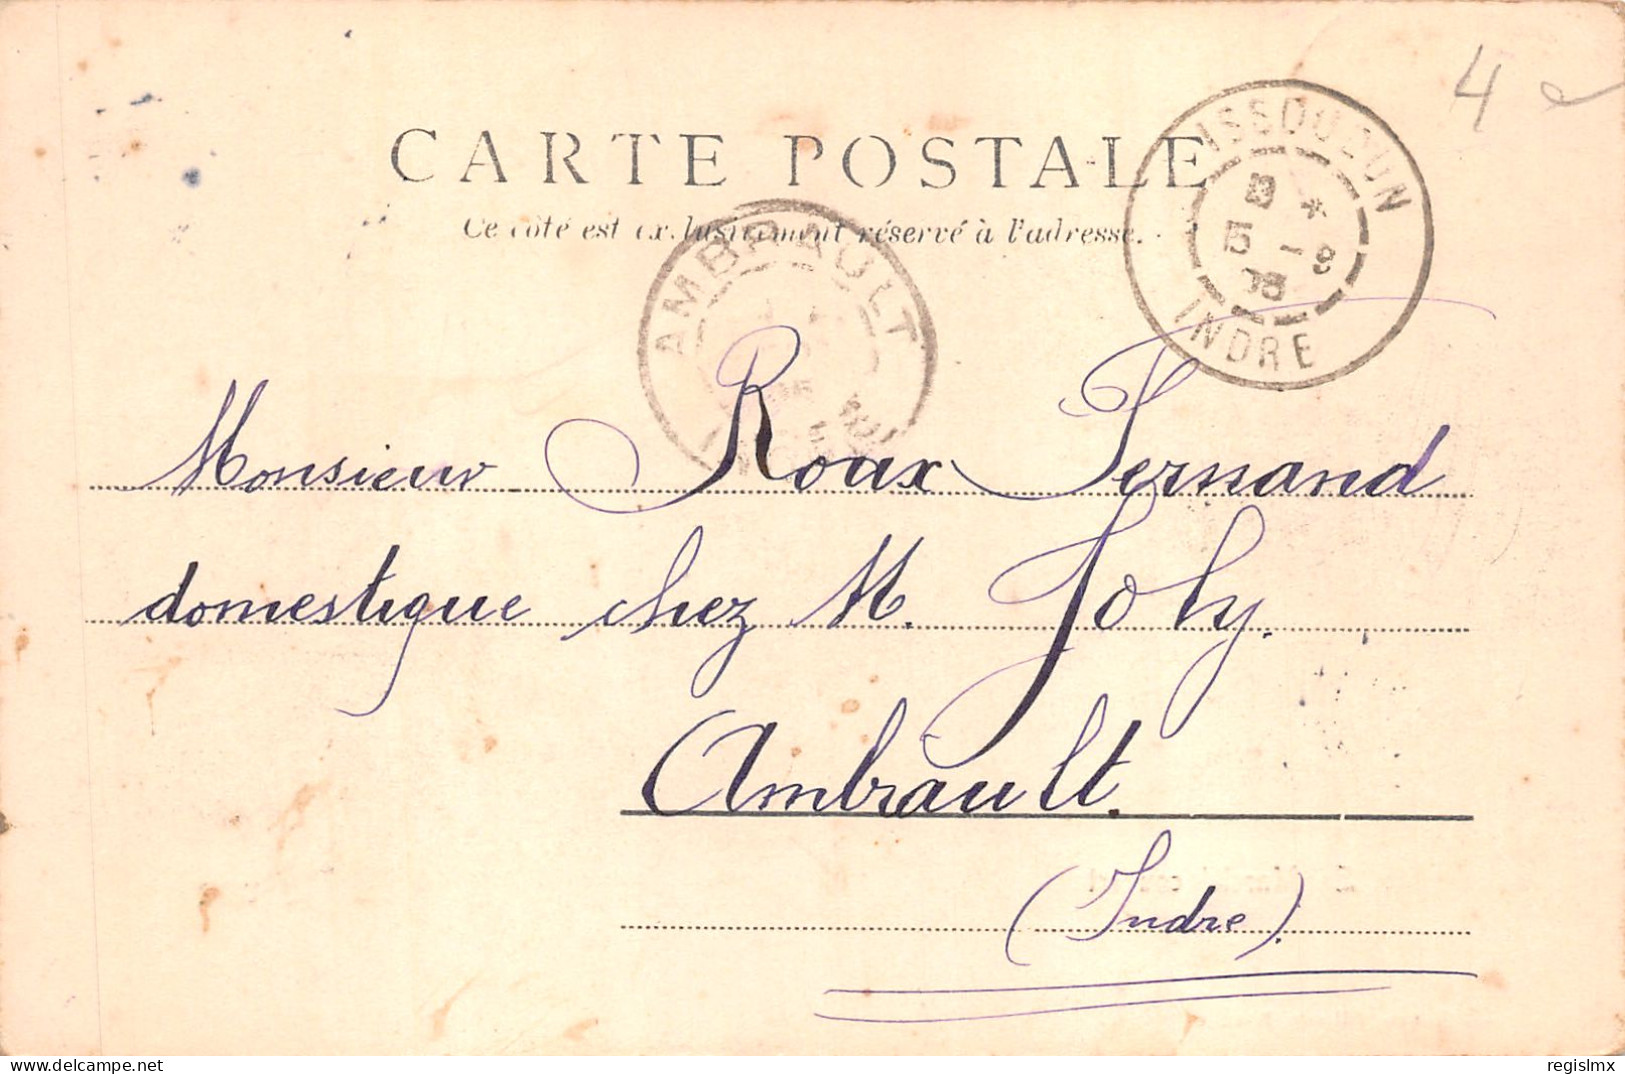 4 e
CARTE POSTALE
Ce côté est exclusivement réservé à l'adresse.
ISSOUDUN
15 -9
05
INDRE
AMBRAULT
Monsieur Roux Fernand
domestique chez M. Joly.
Ambrault.
(Indre).
www.delcampe.net
regislmx